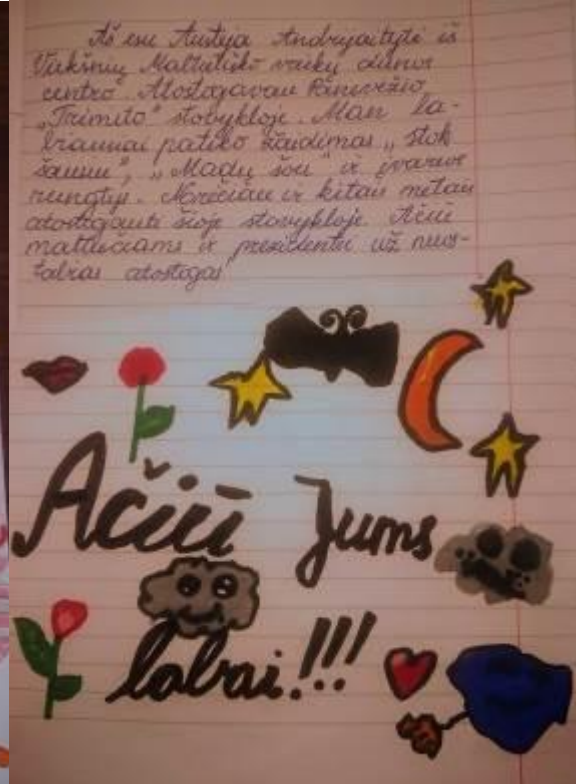 Aš esu Austėja Andryaitytė iš
Maltiečių vaikų dienos
centro. Atostogavau Panevėžio
„Trimito" stovykloje. Man la-
biausiai patiko žaidimas „
šou", „Madų šou" ir įvairios
rungtys. Norėčiau ir kitais metais
atostogauti šioje stovykloje. Ačiū
maltiečiams ir prezidentui už nuos-
tabias atostogas
Ačiū Jums
labai!!!